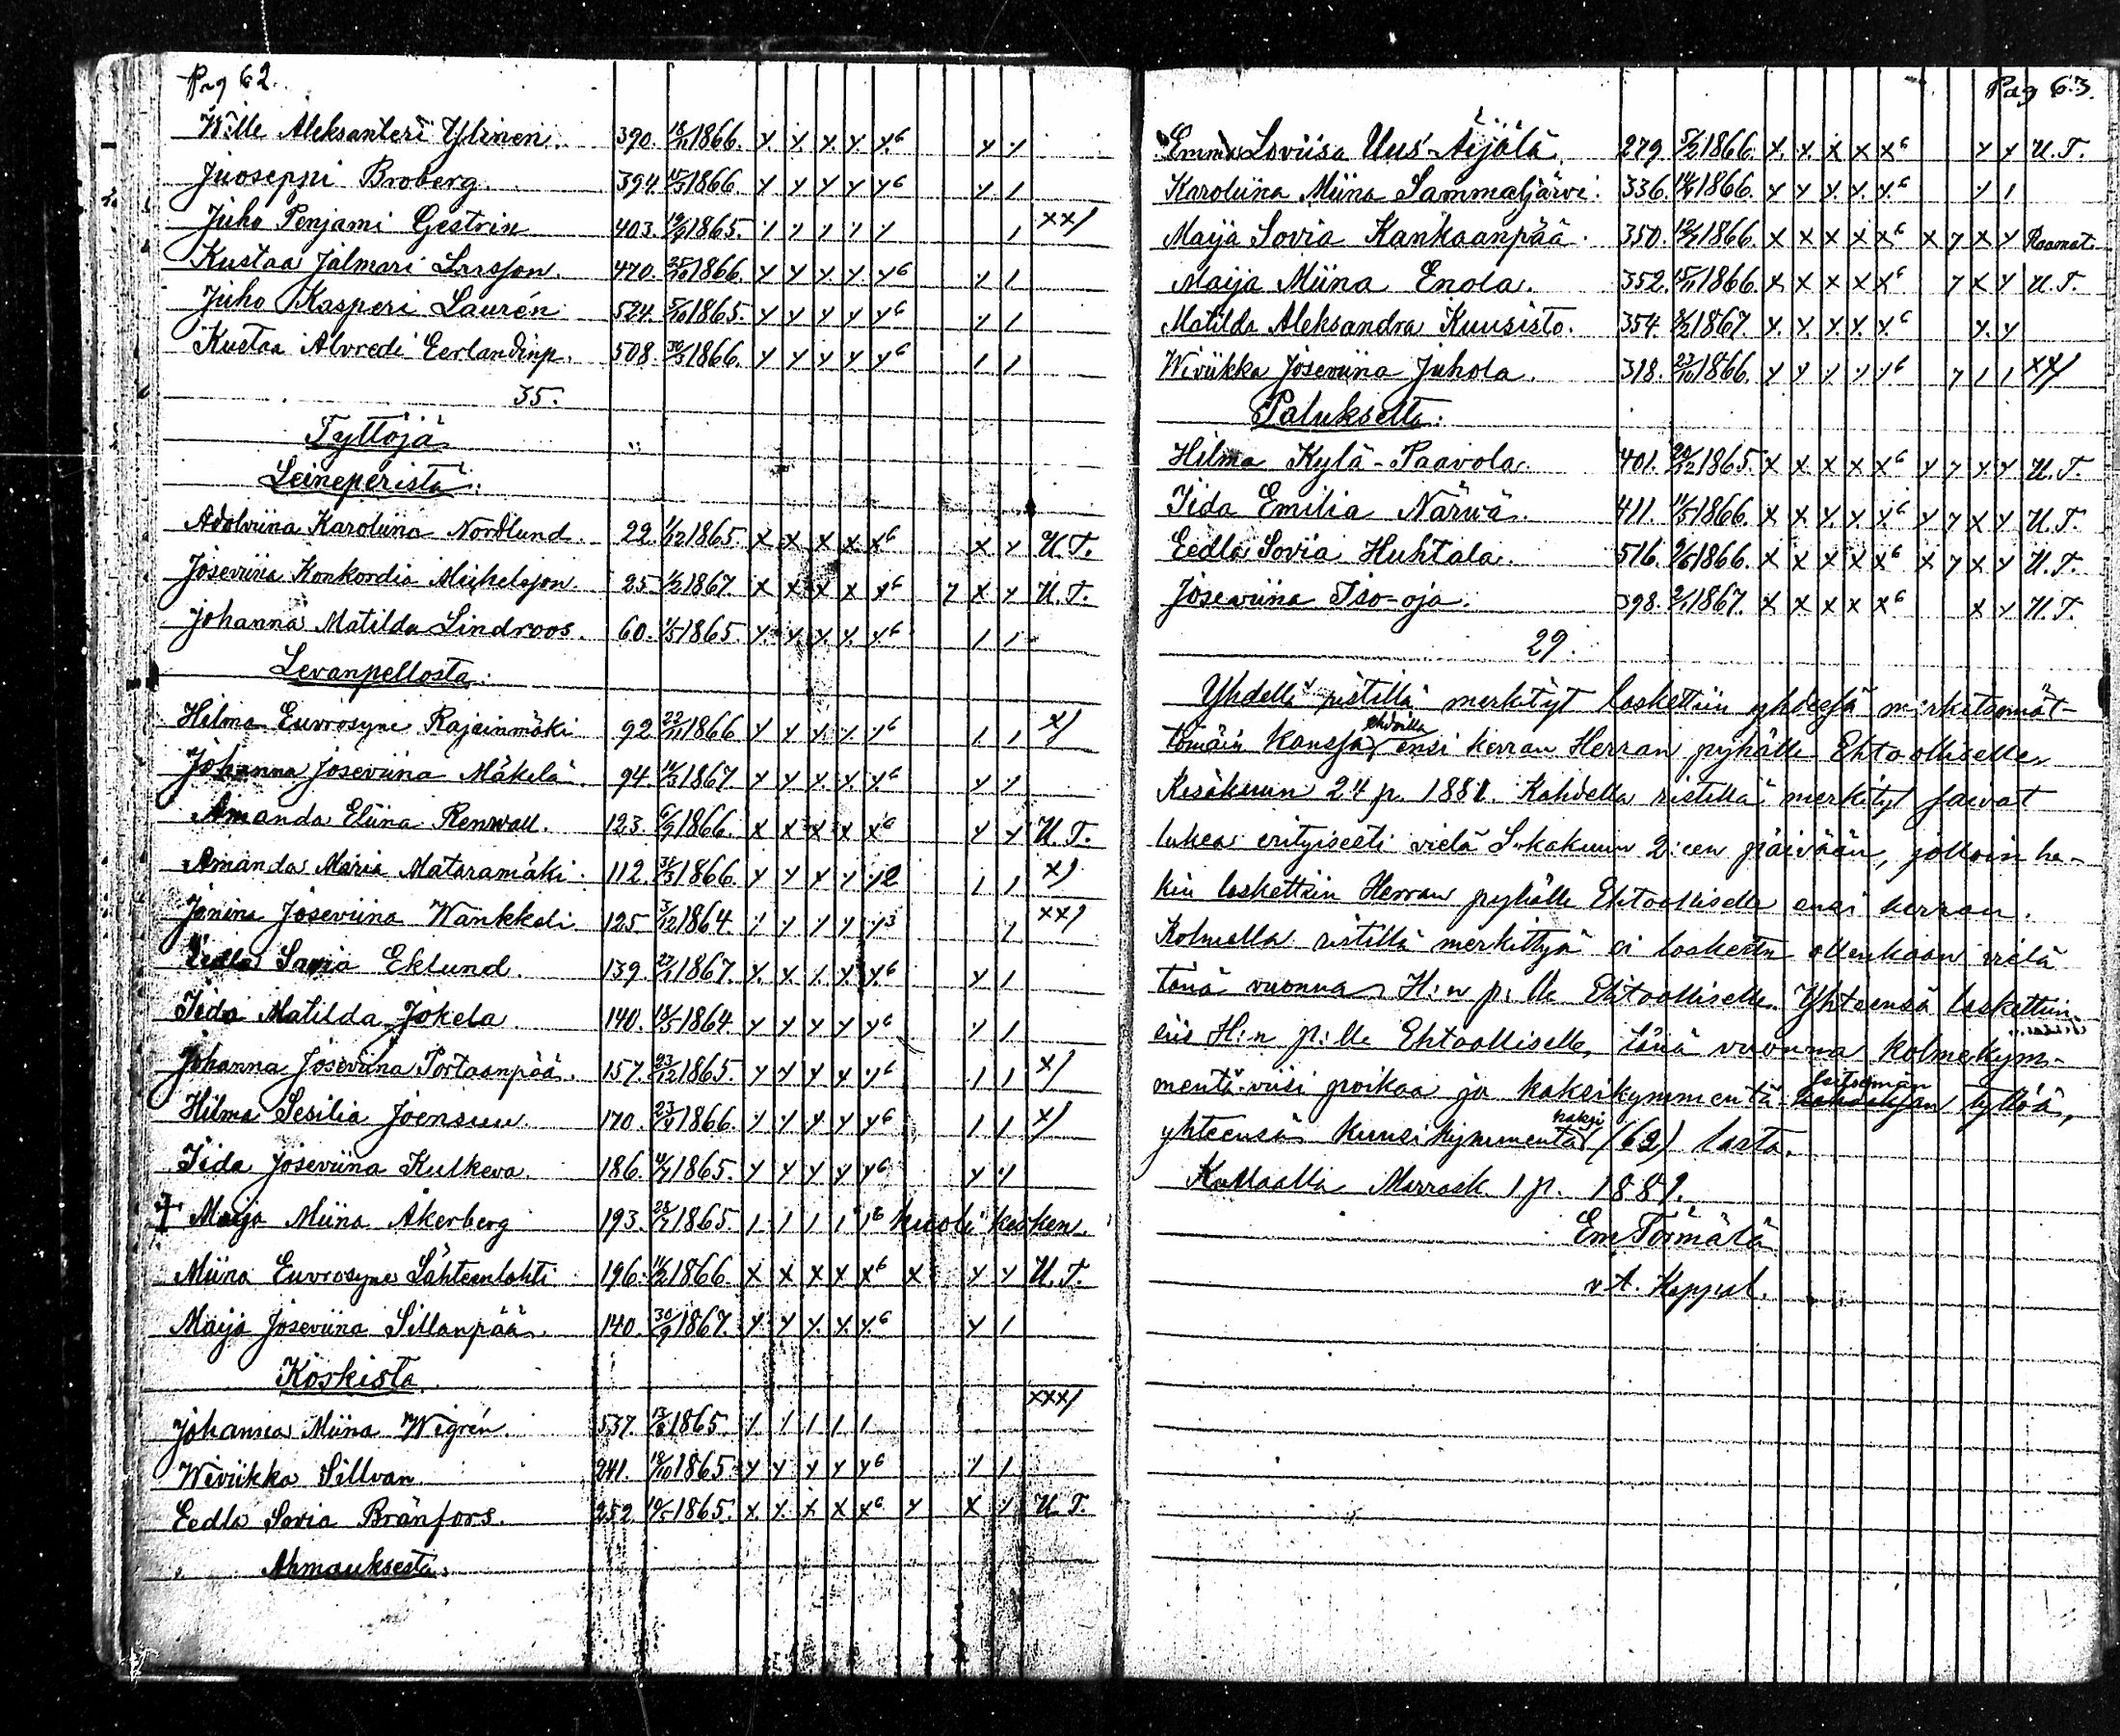 Pag 62.
Wille Aleksanteri Ylinen. 390. 1866. x x x x x6 x x
Juoseppi Broberg. 394. 1866. x x x x x6 x /
Juho Penjami Gestrin 403. 19/9 1865. / / / / / / xx/
Kustaa Jalmari Larsson. 470. 25/10 1866. x x x x x6 x /
Juho Kasperi Laurén 524. 5/10 1865. x x x x x6 x /
Kustaa Alvredi Eerlandinp. 508. 30/3 1866. x x x x x6 / /
35.
Tyttöjä
Leineperistä:
Adolviina Karoliina Nordlund. 22. 1/12 1865. x x x x x6 x x U.T.
Joseviina Konkordia Mickelsson. 25. 1/2 1867. x x x x x6 7 x x U.T.
Johanna Matilda Lindroos. 60. 1/5 1865. x x x x x6 / /
Levanpellosta:
Hilma Euvrosyne Rajainmäki 92. 22/11 1866 x x x x x6 / / x/
Johanna Joseviina Mäkelä. 94. 14/3 1867. x x x x x6 x x
Amanda Eliina Renwall. 123. 6/9 1866. x x x x x6 x x U.T.
Amanda Maria Mataramäki. 112. 31/3 1866. x x x x x2 / / x/
Janina Joseviina Wankkali. 125. 3/12 1864. / x / x x3 / xx/
Eedla Savia Eklund. 139. 22/1 1867. x x / x x6 x /
Iida Matilda Jokela. 140. 14/5 1864. x x x x x6 x /
Johanna Joseviina Portaanpää. 157. 23/12 1865. x x x x x6 / / x/
Hilma Sesilia Joensuu. 170. 23/4 1866. x x x x x6 / / x/
Iida Joseviina Kulkeva. 186. 4/7 1865. x x x x x6 x x
† Maija Miina Åkerberg 193. 28/7 1865. / / / / /6 kuoli kesken.
Miina Euvrosyne Lähteenlahti 196. 11/2 1866. x x x x x6 x x x U.T.
Maija Joseviina Sillanpää. 140. 30/9 1867. x x x x x6 x /
Koskista
Johanna Miina Wigrén. 537. 13/8 1865. / / / / / xxx/
Wiviikka Sillvan. 241. 18/10 1865. x x x x x6 / /
Eedla Savia Bränfors. 252. 1865. x x x x x6 x x / U.T.
Ahmauksesta.
Pag 63.
Emma Loviisa Uus-Äijälä. 279. 5/2 1866. x x x x x6 x x U.T.
Karoliina Miina Sammaljärvi. 336. 14/8 1866. x x x x x6 x /
Maija Sovia Kankaanpää. 350. 12/7 1866. x x x x x6 x 7 x x Raamat.
Maija Miina Enola. 352. 15/11 1866. x x x x x6 7 x x U.T.
Matilda Aleksandra Kuusisto. 354. 8/2 1867. x x x x x6 x x
Wiviikka Joseviina Juhola. 318. 23/10 1866. x x x x x6 7 / / xx/
Palukselta:
Hilma Kylä-Paavola. 401. 20/12 1865. x x x x x6 x 7 x x U.T.
Iida Emilia Närvä. 411. 11/5 1866. x x x x x6 x 7 x x U.T.
Eedla Sovia Huhtala. 516. 9/6 1866. x x x x x6 x 7 x x U.T.
Joseviina Iso-oja. 398. 2/1 1867. x x x x x6 x x U.T.
29.
Yhdellä ristillä merkityt laskettiin yhdessä merkitsemät-
tömäin kanssa ehdoilla ensi kerran Herran pyhälle Ehtoolliselle
Kesäkuun 24 p. 1881. Kahdella ristillä merkityt saivat
lukea erityisesti vielä Lokakuun 2:een päivään, jolloin he-
kin laskettiin Herran pyhälle Ehtoolliselle ensi kerran.
Kolmella ristillä merkittyä ei laskettu ollenkaan vielä
tänä vuonna H:n p:lle Ehtoolliselle. Yhteensä laskettiin
siis H:n p:lle Ehtoolliselle, tänä vuonna kolmekym-
mentä-viisi poikaa ja kaksikymmentä-seitsemän tyttöä,
yhteensä kuusikymmentä kaksi (62) lasta.
Kullaalla Marrask. 1 p. 1881.
Em. Törmälä
v.t. Kappal.